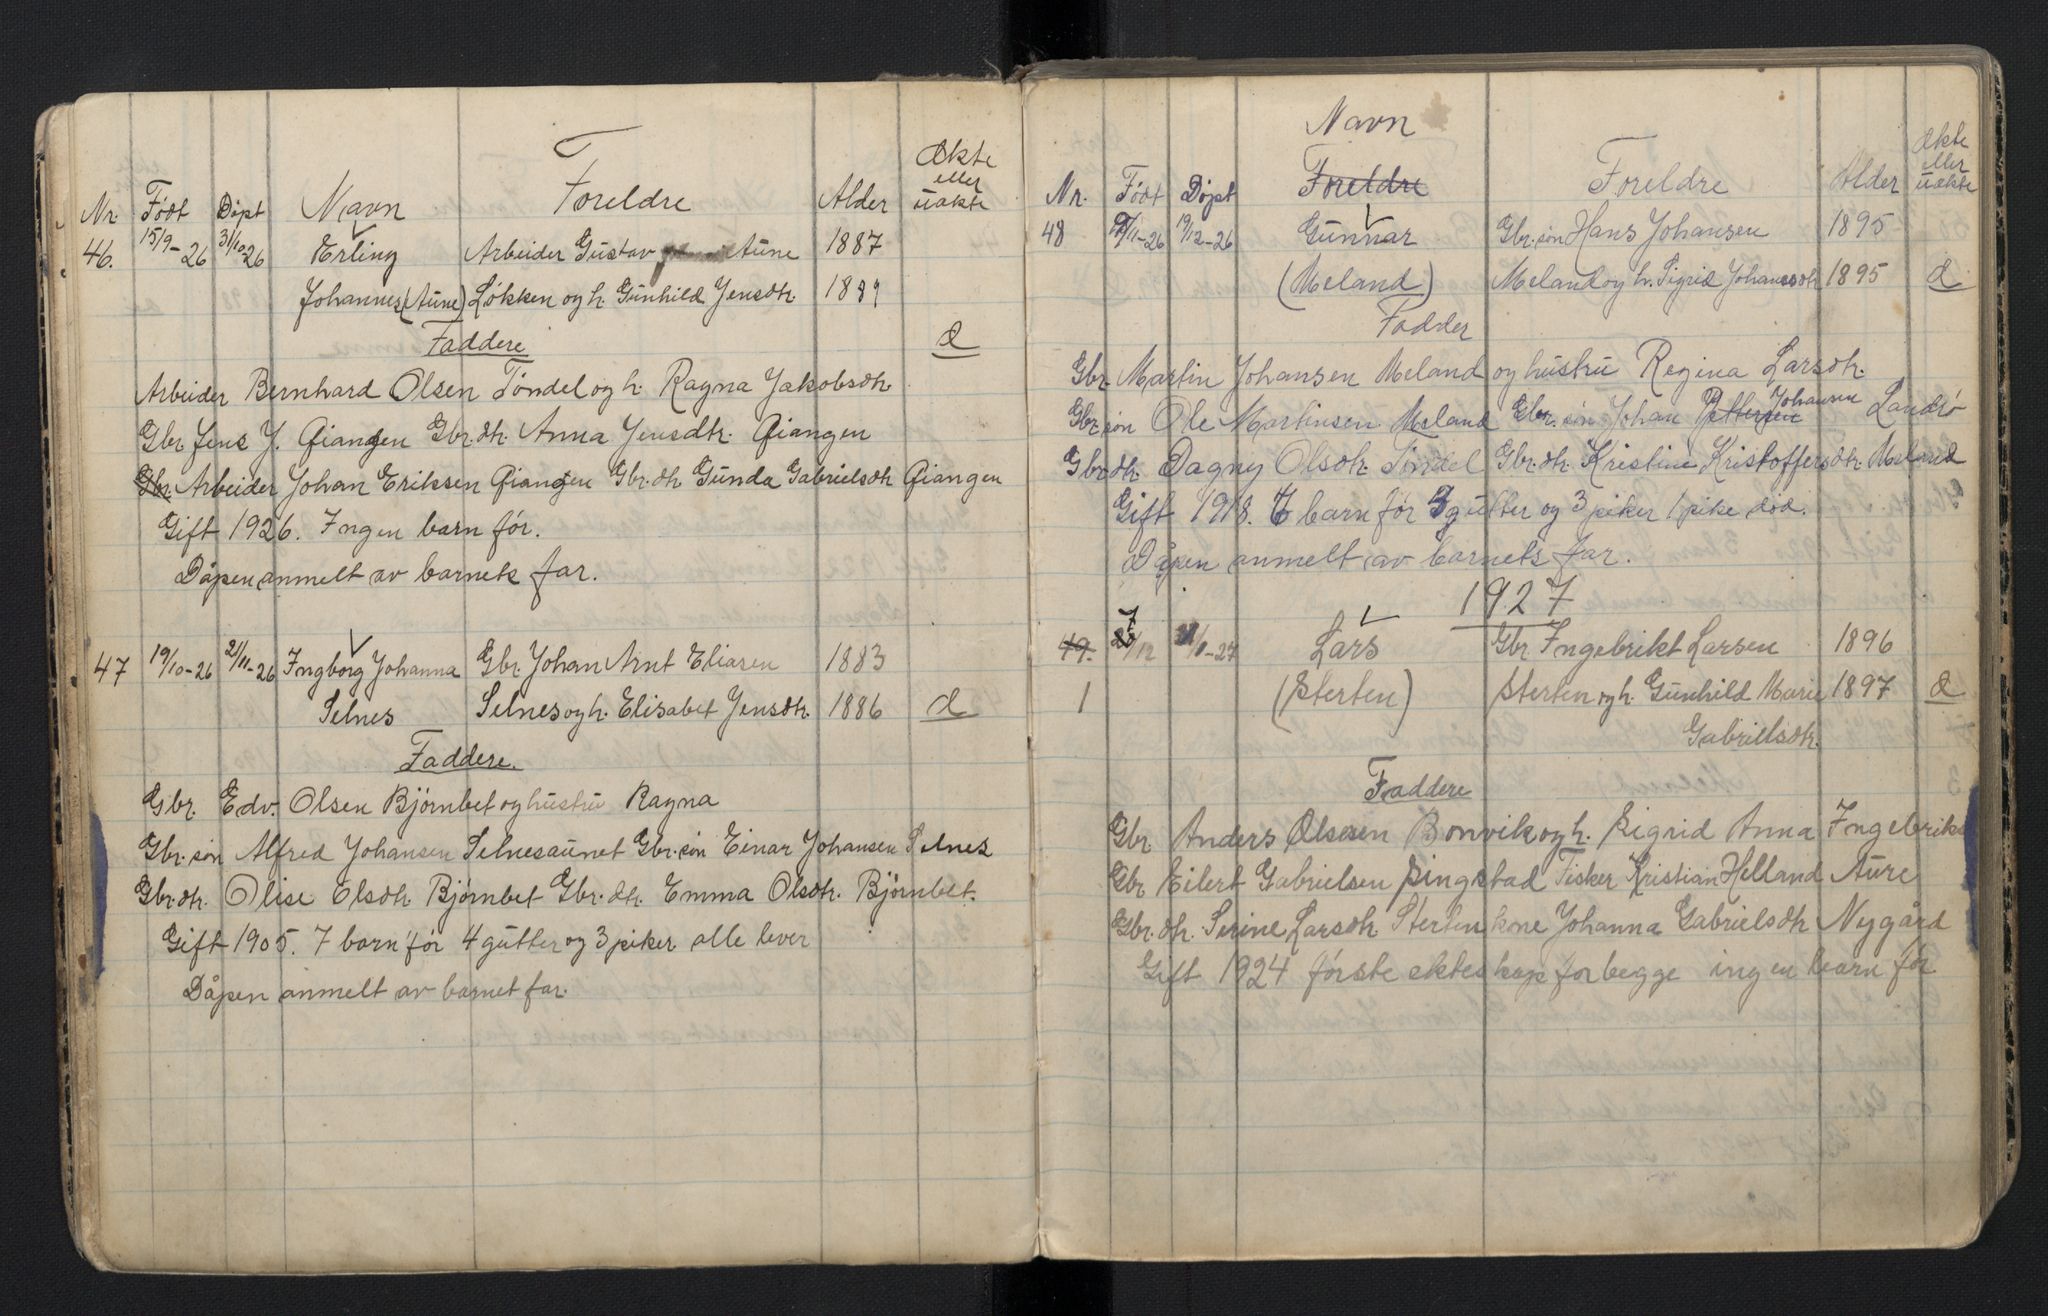 Nr. Født Døpt Navn Foreldre Alder Ækte eller uækte
46. 15/9-26 31/10-26 Erling Arbeider Gustav Aune 1887
Johannes (Aune) Løkken og h. Gunhild Jensdtr. 1889
Faddere Æ
Arbeider Bernhard Olsen Tøndel og h. Ragna Jakobsdtr.
Gbr. Jens J. Qiangen Gbr.dtr. Anna Jensdtr. Qiangen
Gbr. Arbeider Johan Eriksen Qiangen Gbr.dtr Gunda Gabrielsdtr Qiangen
Gift 1926. Ingen barn før.
Dåpen anmelt av barnets far.
47 19/10-26 21/11-26 Ingborg Johanna Gbr. Johan Arnt Eliasen 1883
Selnes Selnes og h. Elisabet Jensdtr. 1886 Æ
Faddere.
Gbr. Edv. Olsen Bjørnbet og hustru Ragna
Gbr.søn Alfred Johansen Selnesaunet Gbr.søn Einar Johansen Selnes
Gbr.dtr. Olise Olsdtr. Bjørnbet Gbr.dtr. Emma Olsdtr. Bjørnbet.
Gift 1905. 7 barn før 4 gutter og 3 piker alle lever
Dåpen anmelt av barnet far.
Navn
Nr. Født Døpt Foreldre Foreldre Alder Ækte eller uækte
48 /11-26 19/12-26 Gunnar Gbr.søn Hans Johansen 1895
(Meland) Meland og h. Sigrid Johansdtr 1895 Æ
Fadder
Gbr. Martin Johansen Meland og hustru Regina Larsdtr.
Gbr.søn Ole Martinsen Meland Gbr.søn Johan Pettersen Johansen Landrø
Gbr.dtr. Dagny Olsdtr. Tøndel Gbr.dtr. Kristine Kristoffersdtr. Meland
Gift 1918. barn før gutter og 3 piker 1 pike død.
Dåpen anmelt av barnets far.
1927
49. 7/12 /1-27 Lars Gbr. Ingebrikt Larsen 1896
1 (Sterten) Sterten og h. Gunhild Marie 1897 Æ
Gabrielsdtr.
Faddere
Gbr. Anders Olsen Bonvik og h. Sigrid Anna Ingebriks
Gbr. Eilert Gabrielsen Singstad Fisker Kristian Helland Aure
Gbr.dtr. Serine Larsdtr. Sterten kone Johanna Gabrielsdtr Nygård
Gift 1924 første ekteskap for begge ingen barn før